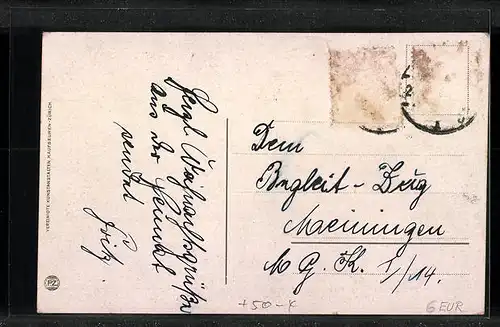 Herzl. Weihnachtsgrüße
aus der Heimat
sendet
Fritz.
Dem
Begleit-Zug
Meiningen
M. G. K. 1/14.
VEREINIGTE KUNSTANSTALTEN, KAUFBEUREN-ZÜRICH
PZ
+50-K
6 EUR